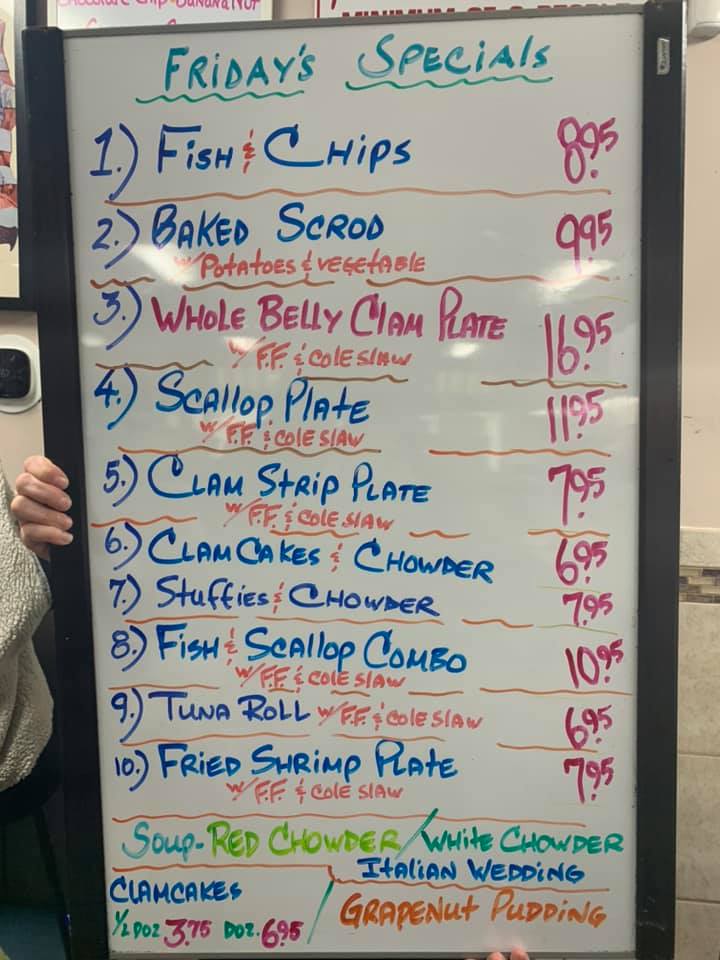 Chocolate Chip-Banana Nut
MINIMUM OF 2 PEOPLE
FRIDAY'S SPECIALS
1.) FISH & CHIPS 8.95
2.) BAKED SCROD 9.95
w/ POTATOES & VEGETABLE
3.) WHOLE BELLY CLAM PLATE 16.95
w/ F.F. & COLE SLAW
4.) SCALLOP PLATE 11.95
w/ F.F. & COLE SLAW
5.) CLAM STRIP PLATE 7.95
w/ F.F. & COLE SLAW
6.) CLAM CAKES & CHOWDER 6.95
7.) STUFFIES & CHOWDER 7.95
8.) FISH & SCALLOP COMBO 10.95
w/ F.F. & COLE SLAW
9.) TUNA ROLL w/ F.F. & COLE SLAW 6.95
10.) FRIED SHRIMP PLATE 7.95
w/ F.F. & COLE SLAW
SOUP - RED CHOWDER / WHITE CHOWDER
ITALIAN WEDDING
CLAMCAKES
1/2 DOZ 3.75 DOZ. 6.95 / GRAPENUT PUDDING